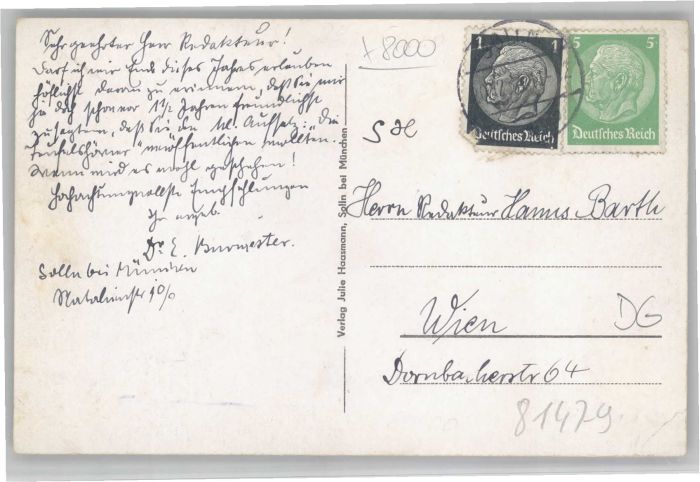 Sehr geehrter Herr Redakteur!
Darf ich mir Ende dieses Jahres erlauben
höflichst daran zu erinnern, daß Sie mir
ja doch schon vor 1½ Jahren freundlichst
zusagten, daß Sie den kl. Aufsatz: "Die
Teufelshörner" veröffentlichen wollten.
Wann wird es wohl geschehen!
Hochachtungsvollste Empfehlungen
Ihr ergeb.
Dr. E. Burmester.
Solln bei München
Natalienstr
Verlag Julie Haasmann, Solln bei München
+ 8000
1 1
Deutsches Reich
5 5
Deutsches Reich
Herrn Redakteur Hanns Barth
Wien
DG
Dornbacherstr 64
81479